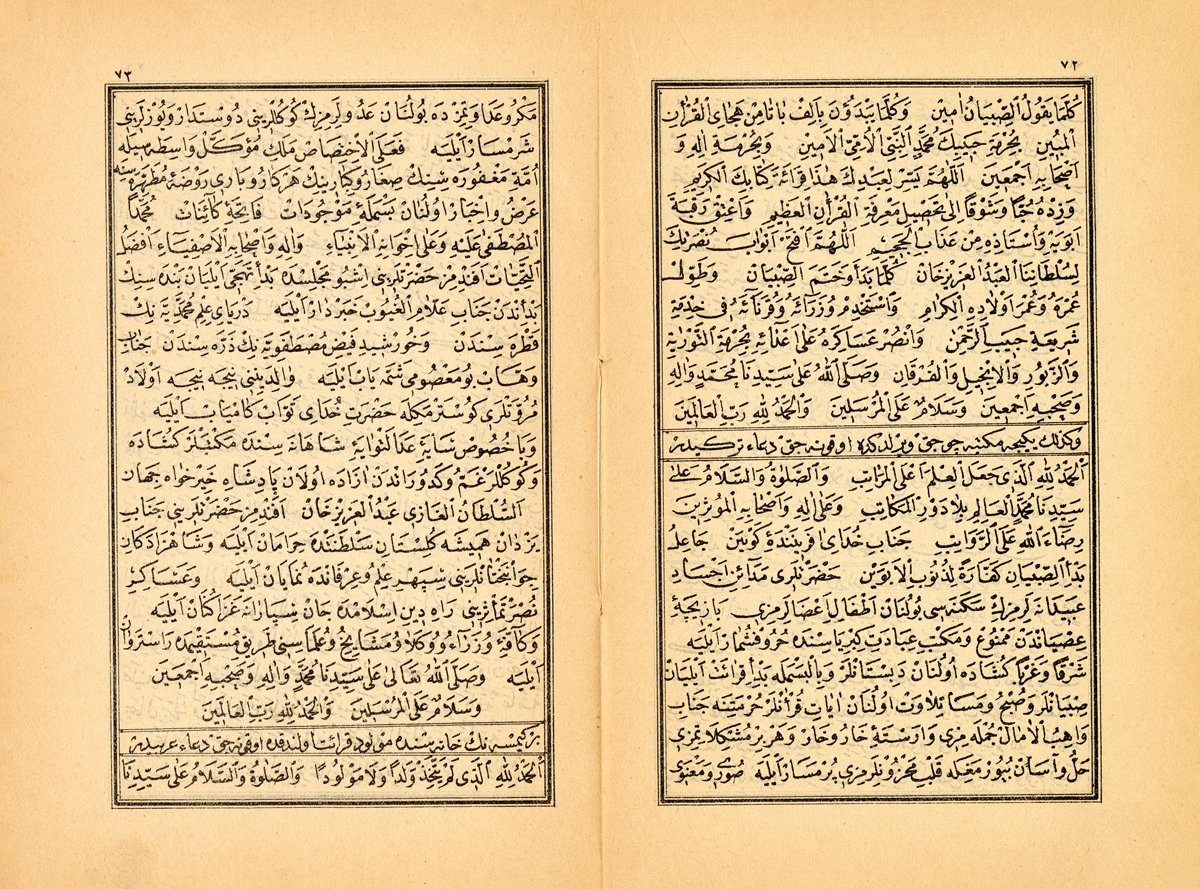 ٧٢
كُلَّمَا يَقُولُ الصِّبْيَانُ اٰمِينَ وَكُلَّمَا يَبْدَؤُنَ بِاَلِفْ بَا تَا مِنْ هِجَاىِ الْقُرْاٰنِ
الْمُبِينِ بِحُرْمَةِ حَبِيبِكَ مُحَمَّدٍ النَّبِىِّ الْاُمِّىِّ الْاَمِينِ وَبِحُرْمَةِ اٰلِهِ وَ
اَصْحَابِهِ اَجْمَعِينَ اَللّٰهُمَّ يَسِّرْ لِعَبْدِكَ هٰذَا قِرَائَةَ كِتَابِكَ الْكَرِيمِ
وَزِدْهُ حُبًّا وَشَوْقًا اِلٰى تَحْصِيلِ مَعْرِفَةِ الْقُرْاٰنِ الْعَظِيمِ وَاَعْتِقْ رَقَبَةَ
اَبَوَيْهِ وَاُسْتَاذِهِ مِنْ عَذَابِ الْجَحِيمِ اَللّٰهُمَّ افْتَحْ اَبْوَابَ نُصْرَتِكَ
لِسُلْطَانِنَا الْعَبْدُ الْعَزِيزِ خَانْ كُلَّمَا بَدَاَ وَخَتَمَ الصِّبْيَانُ وَطَوِّلْ
عُمْرَهُ وَعُمْرَ اَوْلَادِهِ الْكِرَامِ وَاسْتَخْدِمْ وُزَرَائَهُ وَقُرَنَائَهُ فِى خِدْمَةِ
شَرِيعَةِ حَبِيبِ الرَّحْمٰنِ وَانْصُرْ عَسَاكِرَهُ عَلٰى اَعْدَائِهِ بِحُرْمَةِ التَّوْرٰيةِ
وَالزَّبُورِ وَالْاِنْجِيلِ وَالْفُرْقَانِ وَصَلَّى اللّٰهُ عَلٰى سَيِّدِنَا مُحَمَّدٍ وَاٰلِهِ
وَصَحْبِهِ اَجْمَعِينَ وَسَلَامٌ عَلَى الْمُرْسَلِينَ وَالْحَمْدُ لِلّٰهِ رَبِّ الْعَالَمِينَ
وكذلك يكيجه مكتبه چوجق ويرلدكده اوقونه جق دعاء تركيدر
اَلْحَمْدُ لِلّٰهِ الَّذِى جَعَلَ الْعِلْمَ اَعْلَى الْمَرَاتِبِ وَالصَّلٰوةُ وَالسَّلَامُ عَلٰى
سَيِّدِنَا مُحَمَّدٍ الْعَالِمِ بِلَا دَوْرِ الْمَكَاتِبِ وَعَلٰى اٰلِهِ وَاَصْحَابِهِ الْمُؤْثِرِينَ
رِضَاءَ اللّٰهِ عَلَى الرَّوَاتِبِ جَنَابِ خُدَاىِ اٰفَرِينَنْدَهٔ كَوْنَيْنِ جَاعِلِ
بَدْاِ الصِّبْيَانِ كَفَّارَةً لِذُنُوبِ الْاَبَوَيْنِ حَضْرَتْلَرِى مَدَائِنِ اَجْسَادِ
عَبِيدَانَه لَرِمِزِكْ سَكَنَه سِى بُولُنَانْ اَطْفَالِ اَعْضَالَرِمِزِى بَازِيچَهٔ
عِصْيَانْدَنْ مَمْنُوعْ وَمَكْتَبِ عِبَادَتِ كِبْرِيَاسِنْدَه حُرُوفْشُمَارْ اَيْلَيَه
شَرْقًا وَغَرْبًا كُشَادَه اُولُنَانْ دَبِسْتَانْلَرْ وَبِالْبَسْمَلَه بَدْاِ قِرَائَتْ اَيْلَيَانْ
صِبْيَانْلَرْ وَصُبْحُ وَمَسَا تِلَاوَتْ اُولُنَانْ اٰيَاتِ قُرْاٰنْلَرْ حُرْمَتِنَه جَنَابِ
وَاهِبُ الْاٰمَالْ جُمْلَه مِزِى وَارَسْتَهٔ خَارُ وخَارْ وَهَرْ بِرْ مُشْكِلَاتِمِزِى
حَلُّ وآسَانْ بُيُورْمَغِلَه قَلْبِ مَحْزُونْلَرِمِزِى پُرْمَسَارْ اَيْلَيَه صُورِى وَمَعْنَوِى
٧٣
مَكْرُ وعَدَاوَتِمِزْدَه بُولُنَانْ عَدُولَرِمِزِكْ كُوكُلْلَرِينِى دُوسْتْدَارْ وَيُوزْلَرِينِى
شَرْمْسَارْ اَيْلَيَه فَعَلَى الْاِخْتِصَاصْ مَلَكِ مُؤَكَّلْ وَاسِطَه سِيلَه
اُمَّةِ مَغْفُورَه سِنِكْ صِغَارُ وكِبَارِينِكْ هَرْ كَارُ وبَارِى رَوْضَهٔ مُطَهَّرَه سِنَه
عَرْضُ واِخْبَارْ اُولُنَانْ بَسْمَلَهٔ مَوْجُودَاتْ فَاتِحَهٔ كَائِنَاتْ مُحَمَّدًا
الْمُصْطَفٰى عَلَيْهِ وَعَلٰى اِخْوَانِهِ الْاَنْبِيَاءِ وَاٰلِهِ وَاَصْحَابِهِ الْاَصْفِيَاءِ اَفْضَلُ
التَّحِيَّاتْ اَفَنْدِمِزْ حَضْرَتْلَرِينِى اِشْبُو مَجْلِسْدَه بَدْاِ تَهَجِّى اَيْلَيَانْ بَنْدَه سِنِكْ
بَدْاَنْدَنْ جَنَابِ عَلَّامُ الْغُيُوبْ خَبَرْدَارْ اَيْلَيَه دَرْيَاىِ عِلْمِ مُحَمَّدِيَّه نِكْ
قَطْرَه سِنْدَنْ وَخُورْشِيدِ فَيْضِ مُصْطَفَوِيَّه نِكْ ذَرَّه سِنْدَنْ جَنَابِ
وَهَّابْ بُو مَعْصُومِى شَتَّمَه يَابْ اَيْلَيَه وَالِدَيْنِنِى نِيجَه نِيجَه اَوْلَادْ
مُرُوَّتْلَرِى كُوسْتَرْمَكِلَه حَضْرَتِ خُدَاىِ تَوَّابْ كَامْيَابْ اَيْلَيَه
وَبَاخُصُوصْ سَايَهٔ عَدَالَتْوَايَهٔ شَاهَانَه سِنْدَه مَكْتَبْلَرْ كُشَادَه
وَكُوكُلْلَرْ غَمُّ وكَدُورَاتْدَنْ اٰزَادَه اُولَانْ پَادِشَاهِ خَيْرْخَوَاهِ جِهَانْ
اَلسُّلْطَانُ الْغَازِى عَبْدُ الْعَزِيزْ خَانْ اَفَنْدِمِزْ حَضْرَتْلَرِينِى جَنَابِ
يَزْدَانْ هَمِيشَه كُلِسْتَانِ سَلْطَنَتِنْدَه خِرَامَانْ اَيْلَيَه وَشَاهْزَادَكَانِ
جَوَانْبَخْتَانْلَرِينِى سِپِهْرِ عِلْمُ وعِرْفَانْدَه نُمَايَانْ اَيْلَيَه وَعَسَاكِرِ
نُصْرَتْمَاٰثِرِينِى رَاهِ دِينِ اِسْلَامْدَه جَانْ سِپَارَانَه غَزَاكُنَانْ اَيْلَيَه
وَكَافَّهٔ وُزَرَاءُ ووُكَلَا وُمَشَايِخُ وعُلَمَاسِينِى طَرِيقِ مُسْتَقِيمْدَه رَاسْتْرَوَانْ
اَيْلَيَه وَصَلَّى اللّٰهُ تَعَالٰى عَلٰى سَيِّدِنَا مُحَمَّدٍ وَاٰلِهِ وَصَحْبِهِ اَجْمَعِينَ
وَسَلَامٌ عَلَى الْمُرْسَلِينَ وَالْحَمْدُ لِلّٰهِ رَبِّ الْعَالَمِينَ
بر كيمسه نك خانه سنده مولود قرائت اولندقده اوقونه جق دعاء عربيدر
اَلْحَمْدُ لِلّٰهِ الَّذِى لَمْ يَتَّخِذْ وَلَدًا وَلَا مَوْلُودًا وَالصَّلٰوةُ وَالسَّلَامُ عَلٰى سَيِّدِنَا